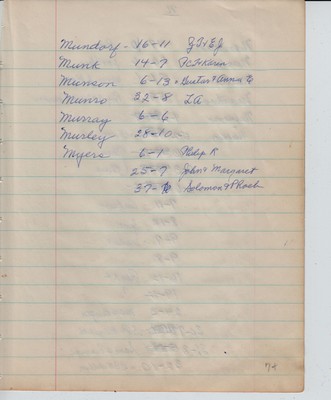 Mundorf - 16-11 Z T & E J
Munk 14-7 P C & Karen
Munson 6-13 & Gustav & Anna
Munro 32-8 L A
Murray 6-6
Musley 28-10
Myers 6-1 Philip R
25-7 John & Margaret
37-16 Solomon & Phoeb
74